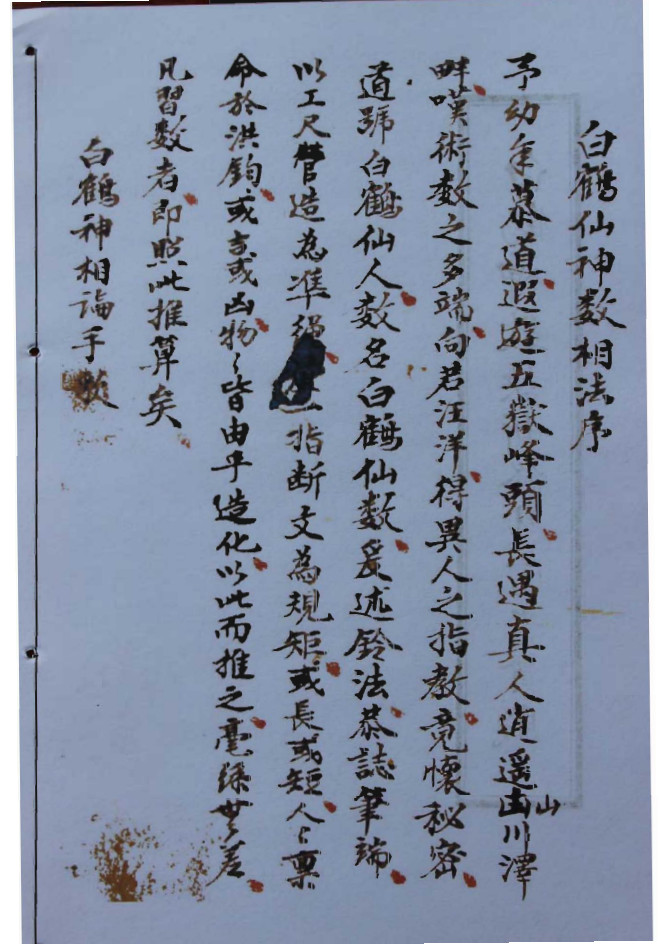 白鶴仙神数相法序
予幼年慕道遐遊五嶽峰頭長遇真人逍遥山川澤
畔嘆術数之多端向若汪洋得異人之指教竟懷秘密
道號白鶴仙人数名白鶴仙数爰述鈴法恭誌筆端
以工尺營造為準繩 一指断文為規矩或長或短人々稟
命於洪鈞或吉或凶物々皆由乎造化以此而推之毫絲無差
凡習数者即照此推算矣
白鶴神相論手